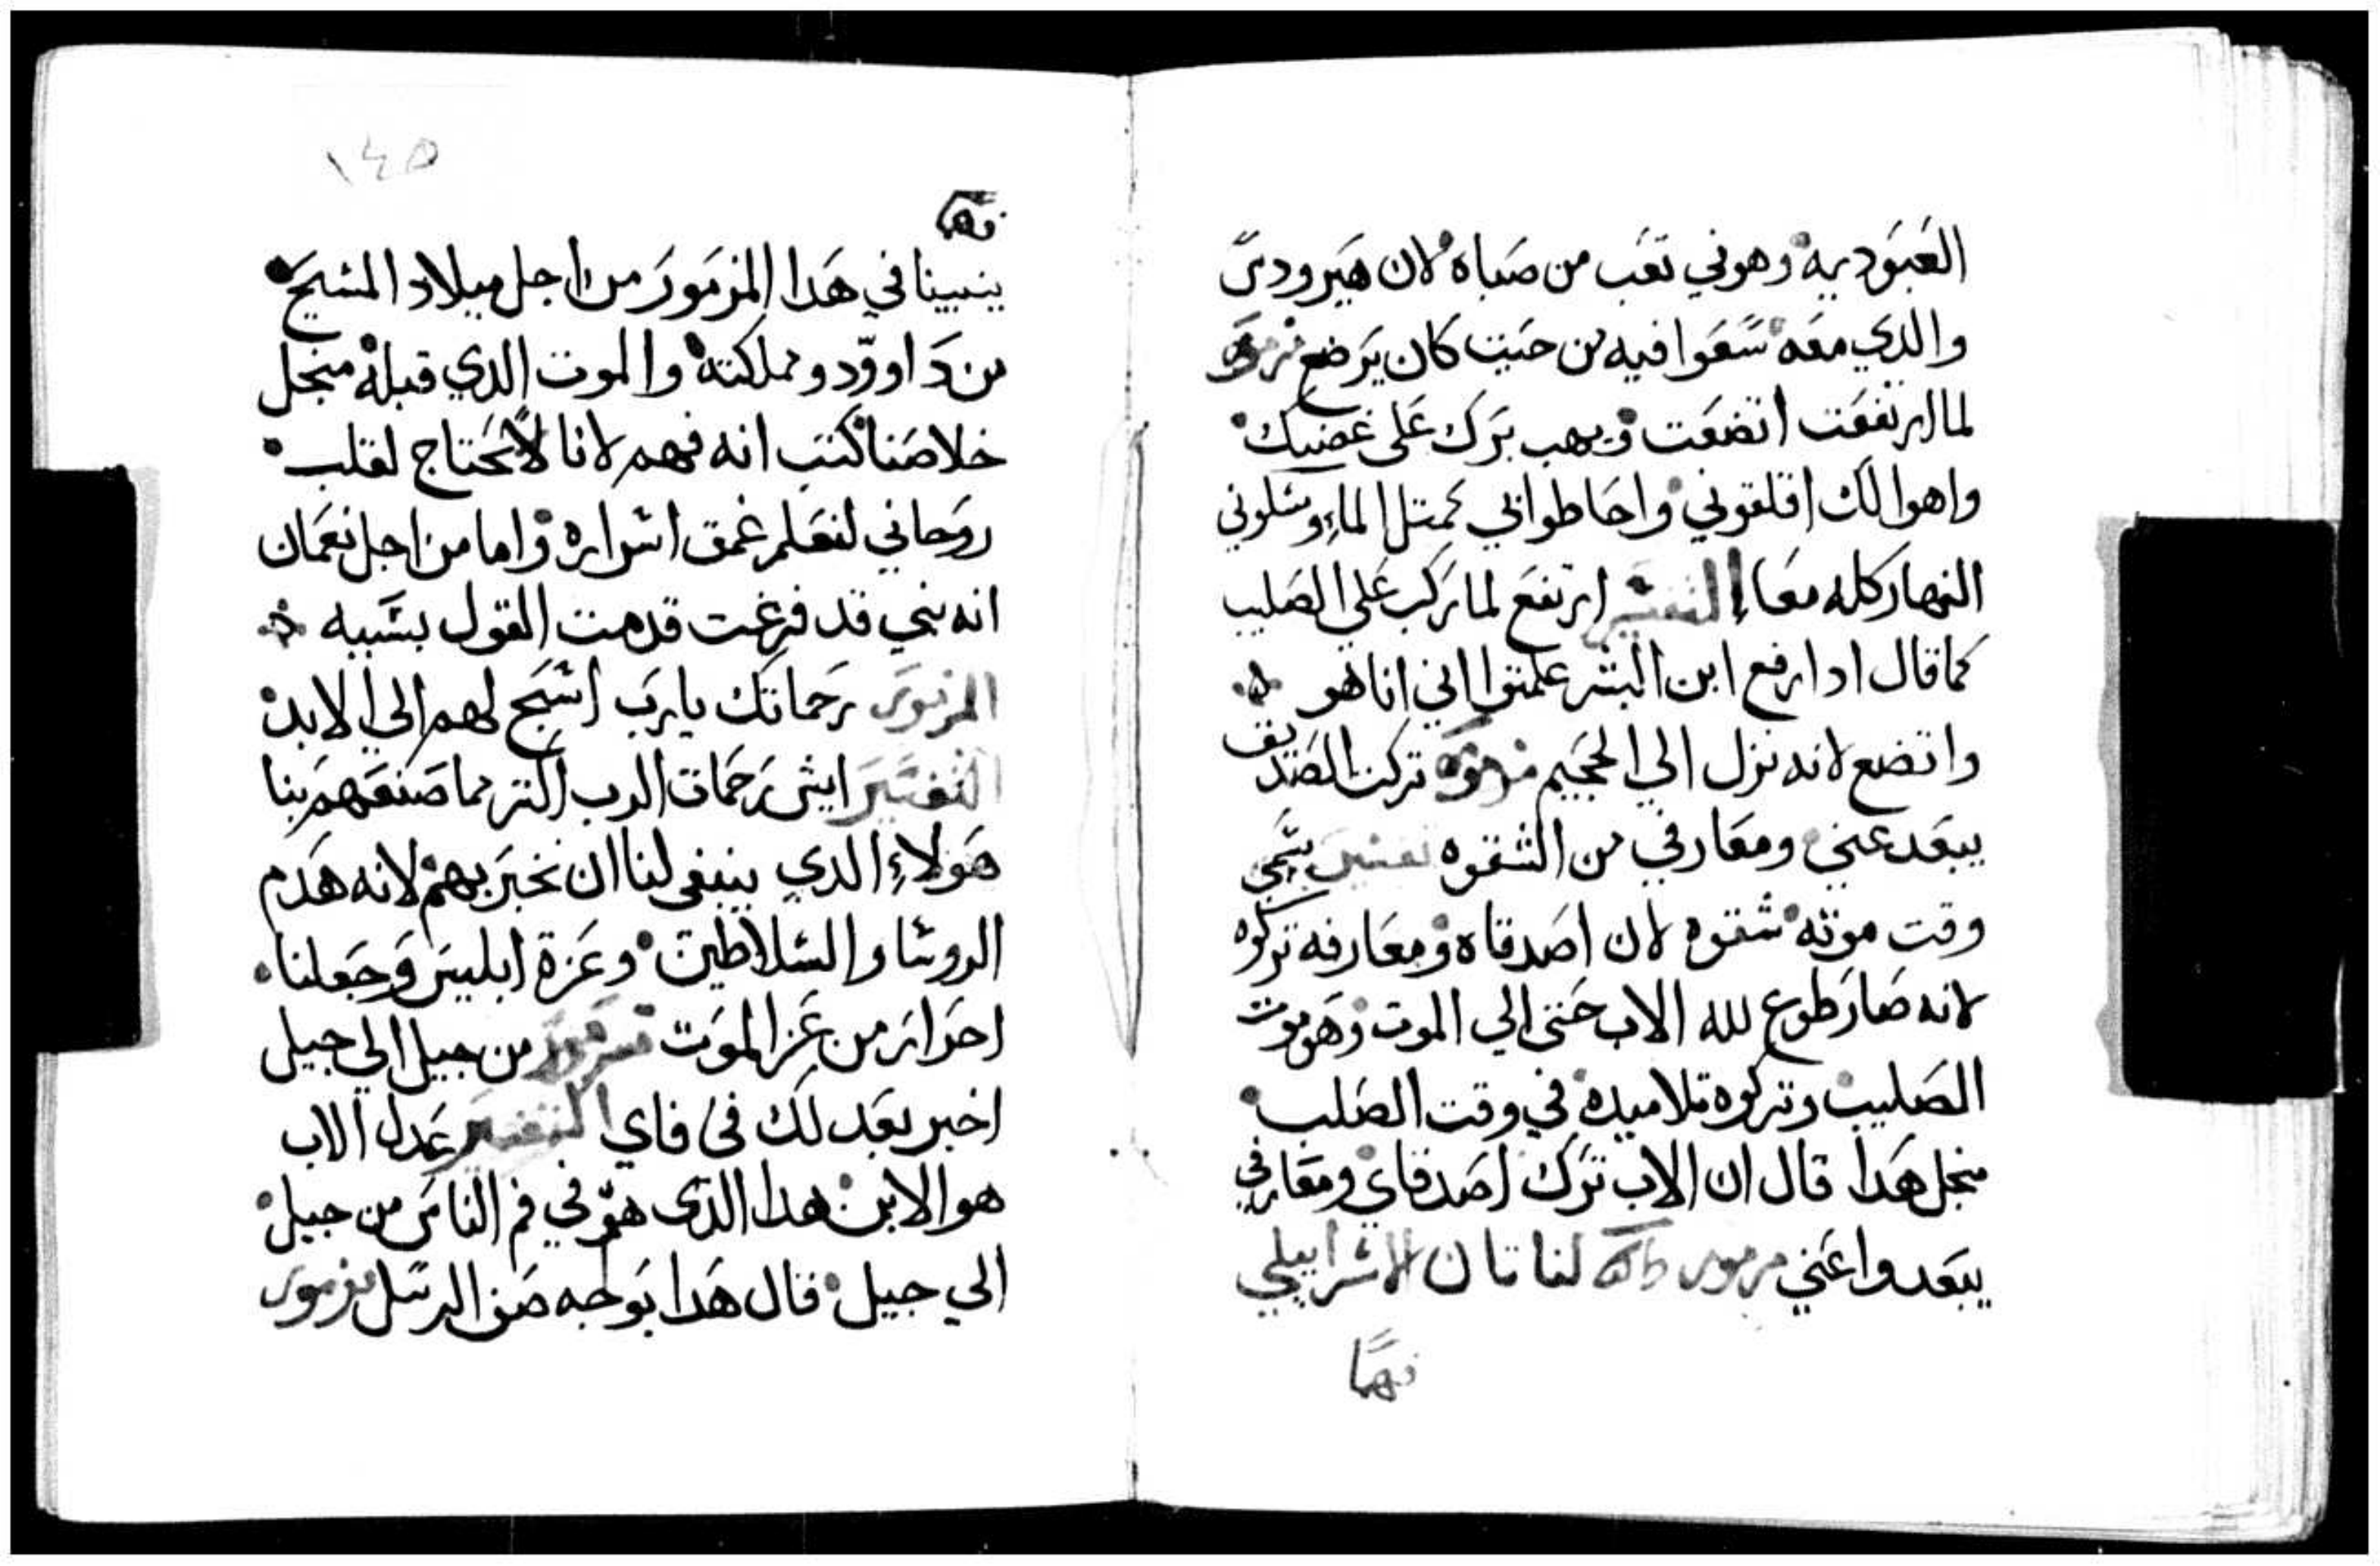 العبوديه وهو في تعب من صباه لان هيرودس
والدي معه سعوا فيه من حيت كان يرضع مزمور
لما ارتفعت اتضعت ويهب برك على غضبك
واهوالك اقلقوني واحاطوا بي كمتل الماء وسلوني
النهار كله معا التفسير ارتفع لما ركب على الصليب
كما قال ادا رفع ابن البشر علمتوا اني انا هو
واتضع لانه نزل الي الجحيم مزمور تركت الصديق
يبعد عني ومعارفي من الشقوه تفسير يسمي
وقت موته شقوه لان اصدقاه ومعارفه تركوه
لانه صار طوع لله الاب حتى الي الموت وهو موت
الصليب وتركوه تلاميده في وقت الصلب
منجل هدا قال ان الاب ترك اصدقاي ومعارفي
يبعدوا عني مزمور لنا تان الاسراييلي
فهما
١٤٥
فهما
ينبينا في هدا المزمور من اجل ميلاد المسيح
من داوود ومملكته والموت الدي قبله منجل
خلاصنا كتب انه فهم لانا لانحتاج لقلب
روحاني لنعلم غمق اسراره واما من اجل نعمان
انه نبي قد فرغت قدمت القول بسببه
المزمور رحماتك يا رب اسبح لهم الي الابد
التفسير ايش رحمات الرب اكتر مما صنعهم بنا
هولاء الدي ينبغى لنا ان نخبر بهم لانه هدم
الروسا والسلاطين وعزة ابليس وجعلنا
احرار من عز الموت مزمور من جيل الي جيل
اخبر بعدلك في فاي التفسير عدل الاب
هو الابن هدا الدى هو في فم الناس من جيل
الي جيل قال هدا بوجه صف الرسل مزمور